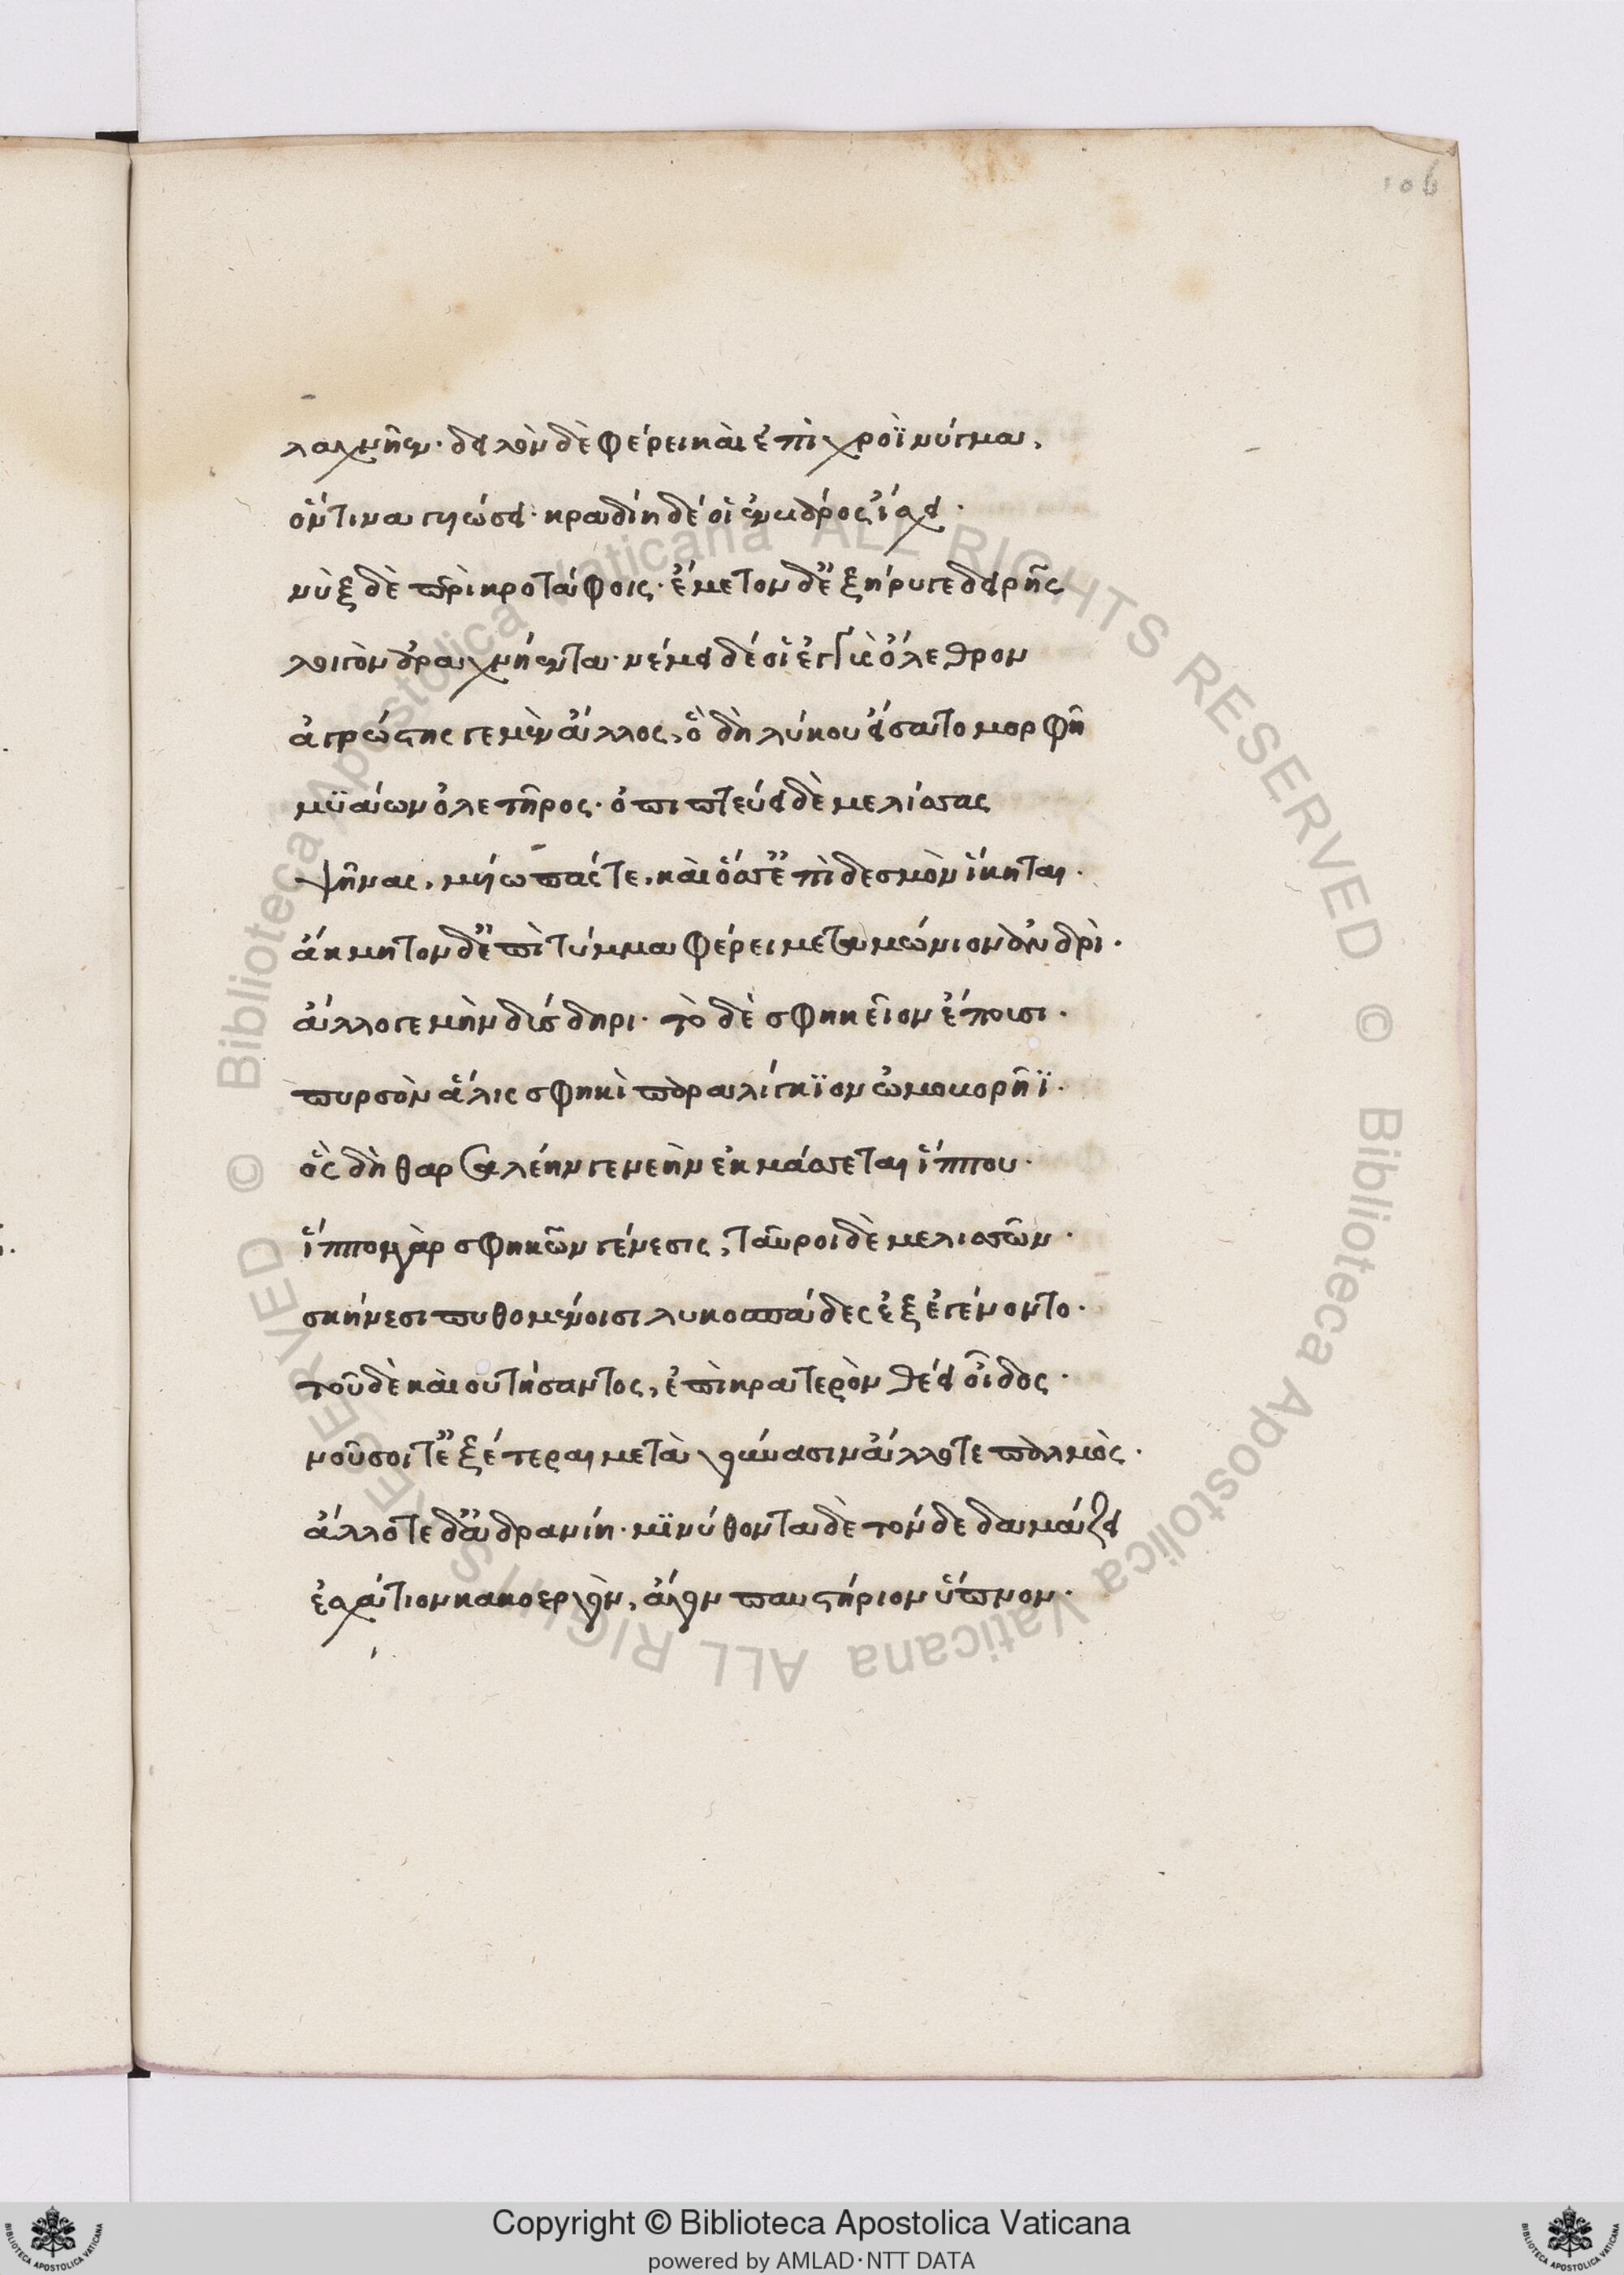 106
λαχνῆεν· δειλὸν δὲ φέρει καὶ ἐπὶ χροῒ νύγμα,
ὅντινα γυιώσει· κραδίη δέ οἱ ἐν κάδρος ἴσχει·
νὺξ δὲ περὶ κροτάφοις· ἔμετον δ' ἐξήρυγε δειρῆς
λοιγὸν ἀραχνήεντα· νέμει δέ οἱ ἐγγὺς ὄλεθρον
ἀγρώστης γε μὲν ἄλλος, ὃ δὴ λύκου εἴσατο μορφῇ
μυϊάων ὀλετῆρος· ὀπιπτεύει δὲ μελίσσας
ψῆνας, μύωπάς τε, καὶ ὅσσ' ἐπὶ δεσμὸν ἵκηται·
ἄκμητον δ' ἐπὶ τύμμα φέρει μεταμώνιον ἀνδρί·
ἄλλο γε μὴν δύσδηρι· τὸ δὲ σφηκεῖον ἔποισι·
πυρσὸν ἅλις σφηκὶ παραλίγκϊον ὠμοκορῆϊ·
ὃς δὴ θαρσαλέην γενεὴν ἐκμάσσεται ἵππου·
ἵπποι γὰρ σφηκῶν γένεσις, ταῦροι δὲ μελισσῶν·
σκήνεσι πυθομένοισι λυκοσπάδες ἐξεγένοντο·
τοῦ δὲ καὶ οὐτήσαντος, ἐπὶ κρατερὸν θέει οἶδος·
νοῦσοι τ' ἐξέτεραι μετὰ γούνασιν ἄλλοτε παλμὸς·
ἄλλοτε δ' ἀδρανίη· μϊνύθοντα δὲ τόνδε δαμάζει
ἐσχάτιον κακοεργὸν, ἄγον παυστήριον ὕπνον·
Copyright © Biblioteca Apostolica Vaticana
powered by AMLAD·NTT DATA